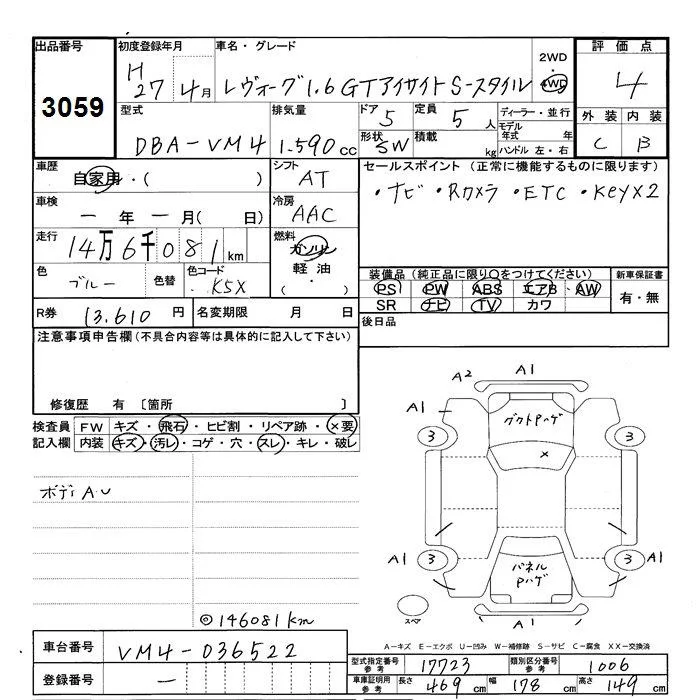 出品番号 初度登録年月 車名・グレード 2WD 評価点
3059 H 27年 4月 レヴォーグ1.6GTアイサイトS-スタイル 4WD 4
型式 排気量 ドア 定員 ディーラー・並行 外装 内装
DBA-VM4 1.590cc 5 5人 モデル年式 年 C B
形状 SW 積載 kg ハンドル 左・右
車歴 自家用・( ) シフト AT セールスポイント (正常に機能するものに限ります)
・ナビ・Rカメラ・ETC・Keyx2
車検 ー年ー月( 日) 冷房 AAC
走行 14万6千081km 燃料 ガソリン
軽油
・( )
色 ブルー 色替 色コード K5X
装備品 (純正品に限り○をつけてください) 新車保証書
PS PW ABS エアB AW 有・無
SR ナビ TV カワ
R券 13.610円 名変期限 月 日 後日品
注意事項申告欄(不具合内容等は具体的に記入して下さい)
修復歴 有 〔箇所 〕
検査員 FW キズ・飛石・ヒビ割・リペア跡・×要
記入欄 内装 キズ・汚レ・コゲ・穴・スレ・キレ・破レ
ボディAU
A2 A1
A1
3 3
×
A1 3 3 A1
パネルPハゲ
スペア A1
◎146081km
A-キズ E-エクボ U-凹み W-補修跡 S-サビ C-腐食 XX-交換済
車台番号 VM4-036522
型式指定番号 参考 17723 類別区分番号 参考 1006
登録番号 ー
車庫証明用 参考 長さ 469cm 幅 178cm 高さ 149cm